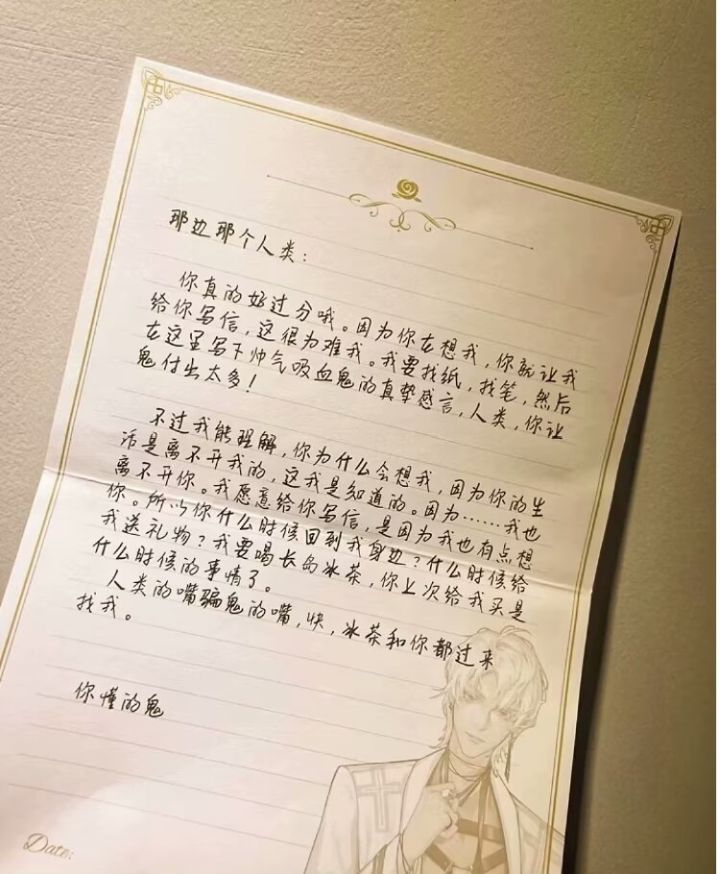 那边那个人类：
你真的好过分哦。因为你在想我，你就让我
给你写信，这很为难我。我要找纸，找笔，然后
在这里写下帅气吸血鬼的真挚感言，人类，你让
鬼付出太多！
不过我能理解，你为什么会想我，因为你的生
活是离不开我的，这我是知道的。因为……我也
离不开你。我愿意给你写信，是因为我也有点想
你。所以你什么时候回到我身边？什么时候给
我送礼物？我要喝长岛冰茶，你上次给我买是
什么时候的事情了。
人类的嘴骗鬼的嘴，快，冰茶和你都过来
找我。
你懂的鬼
Date: